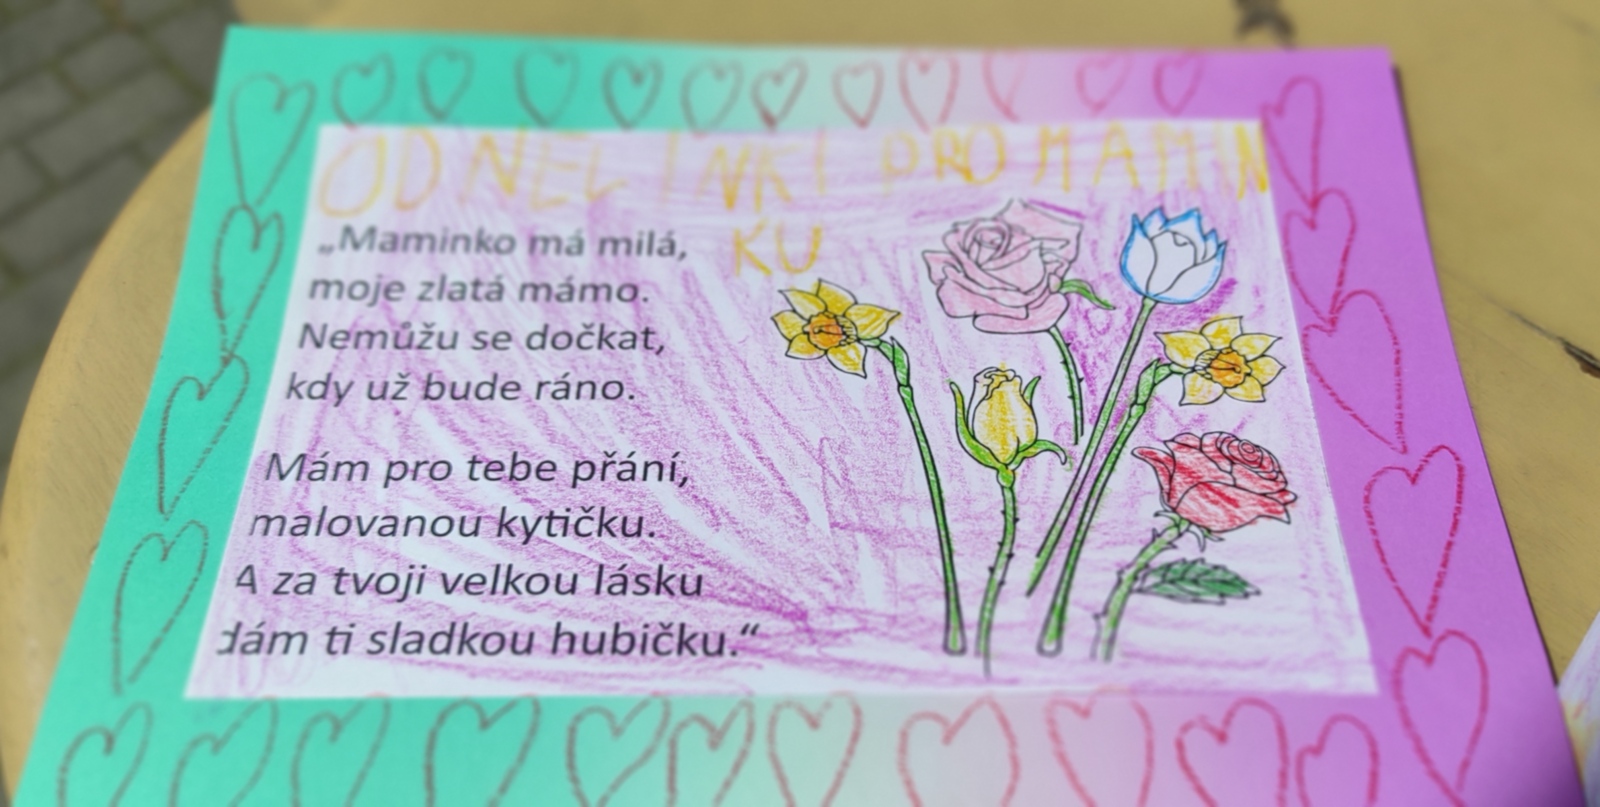 OD NELINKI PRO MAMIN
KU
„Maminko má milá,
moje zlatá mámo.
Nemůžu se dočkat,
kdy už bude ráno.
Mám pro tebe přání,
malovanou kytičku.
A za tvoji velkou lásku
dám ti sladkou hubičku.“